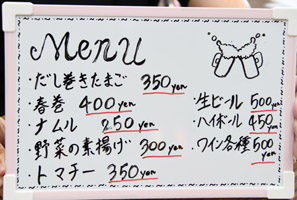 Menu
・だし巻きたまご 350yen
・春巻 400yen
・ナムル 250yen
・野菜の素揚げ 300yen
・トマチー 350yen
・生ビール 500yen
・ハイボール 450yen
・ワイン各種 500yen